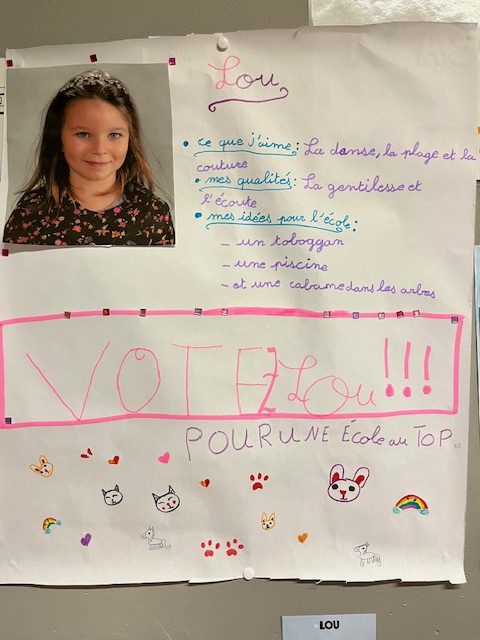 Lou
• ce que j'aime : La danse, la plage et la
couture
• mes qualités : La gentilesse et
l'écoute
• mes idées pour l'école :
- un toboggan
- une piscine
- et une cabane dans les arbres
VOTEZ Lou !!!
POUR UNE École au TOP
LOU